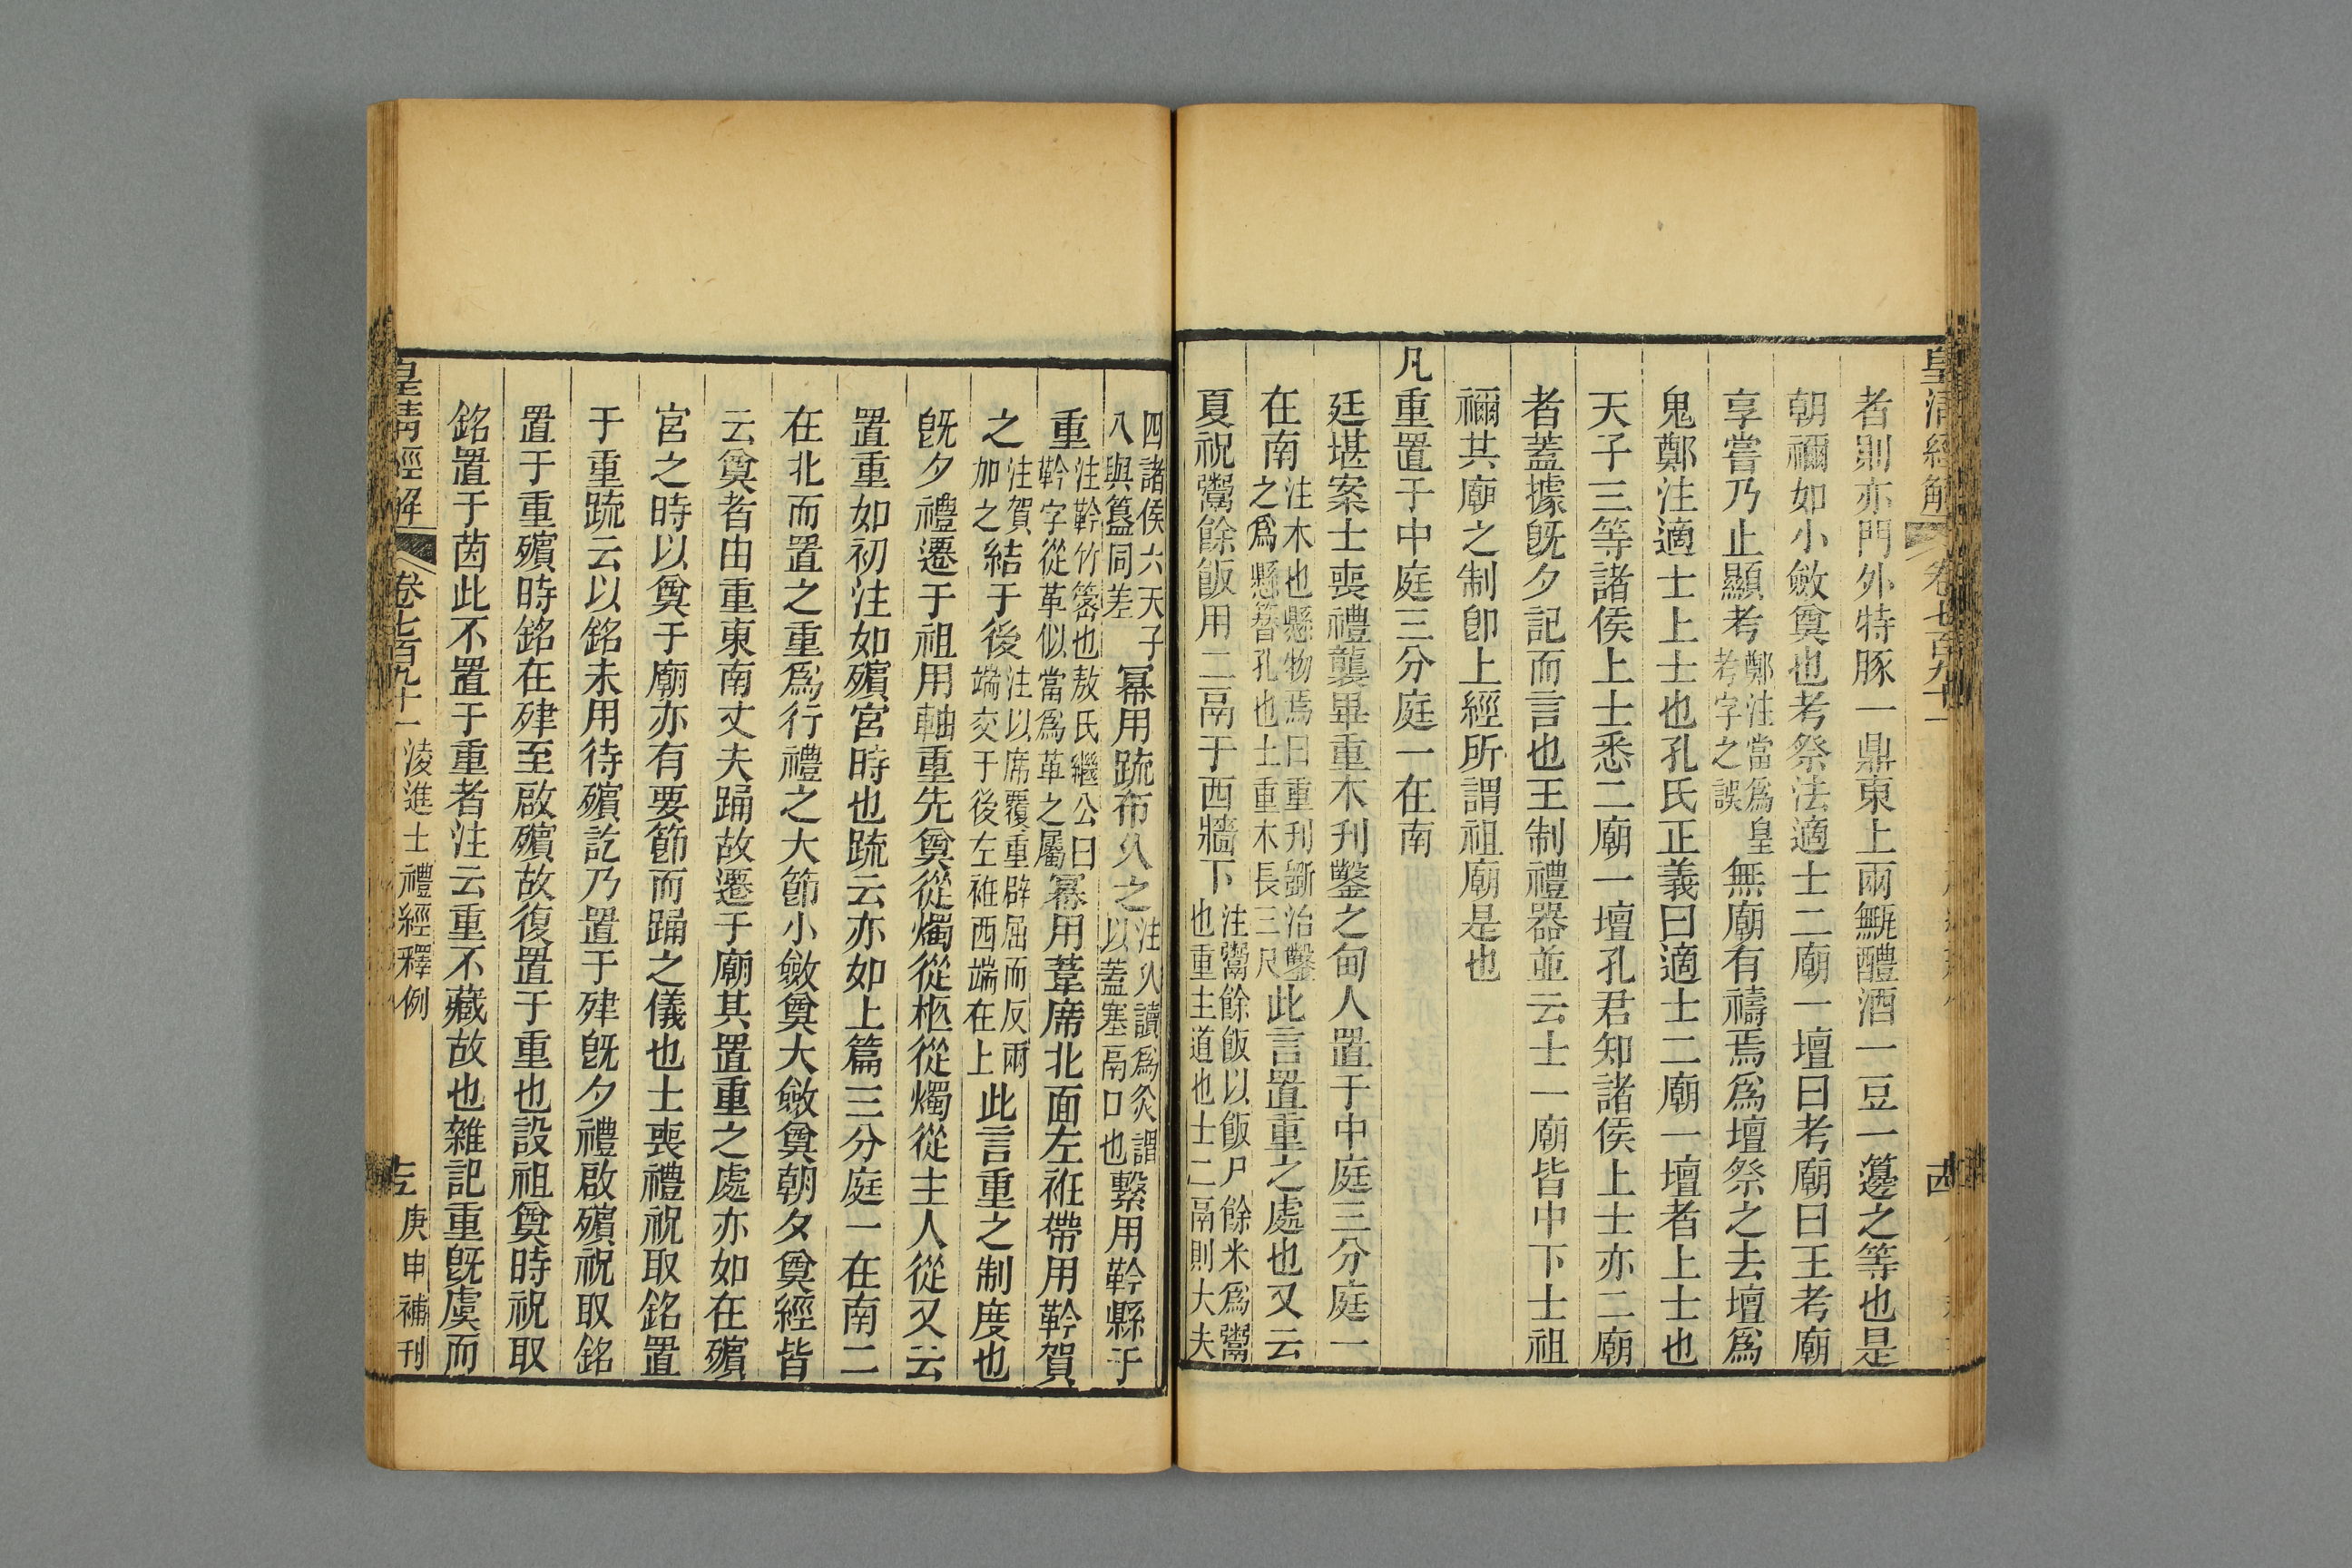 皇清經解
卷七百九十一
者則亦門外特豚一鼎東上兩甒醴酒一豆一籩之等也是
朝禰如小斂奠也考祭法適士二廟一壇曰考廟曰王考廟
享嘗乃止顯考鄭注當爲皇考字之誤無廟有禱焉爲壇祭之去壇爲
鬼鄭注適士上士也孔氏正義曰適士二廟一壇者上士也
天子三等諸侯上士悉二廟一壇孔君知諸侯上士亦二廟
者蓋據旣夕記而言也王制禮器並云士一廟皆中下士祖
禰其廟之制卽上經所謂祖廟是也
凡重置于中庭三分庭一在南
廷堪案士喪禮襲畢重木刋鑿之甸人置于中庭三分庭一
在南注木也懸物焉曰重刋斵治鑿之爲懸簪孔也士重木長三尺此言置重之處也又云
夏祝鬻餘飯用二鬲于西牆下注鬻餘飯以飯尸餘米爲鬻也重主道也士二鬲則大夫
四諸侯六天子八與簋同差冪用疏布久之注久讀爲灸謂以蓋塞鬲口也繫用靲縣于
重注靲竹䈼也敖氏繼公曰靲字從革似當爲革之屬冪用葦席北面左衽帶用靲賀
之注賀加之結于後注以席覆重辟屈而反兩端交于後左衽西端在上此言重之制度也
旣夕禮遷于祖用軸重先奠從燭從柩從燭從主人從又云
置重如初注如殯宮時也疏云亦如上篇三分庭一在南二
在北而置之重爲行禮之大節小斂奠大斂奠朝夕奠經皆
云奠者由重東南丈夫踊故遷于廟其置重之處亦如在殯
宮之時以奠于廟亦有要節而踊之儀也士喪禮祝取銘置
于重疏云以銘未用待殯訖乃置于肂旣夕禮啟殯祝取銘
置于重殯時銘在肂至啟殯故復置于重也設祖奠時祝取
銘置于茵此不置于重者注云重不藏故也雜記重旣虞而
皇清經解
卷七百九十一
淩進士禮經釋例
庚申補刊